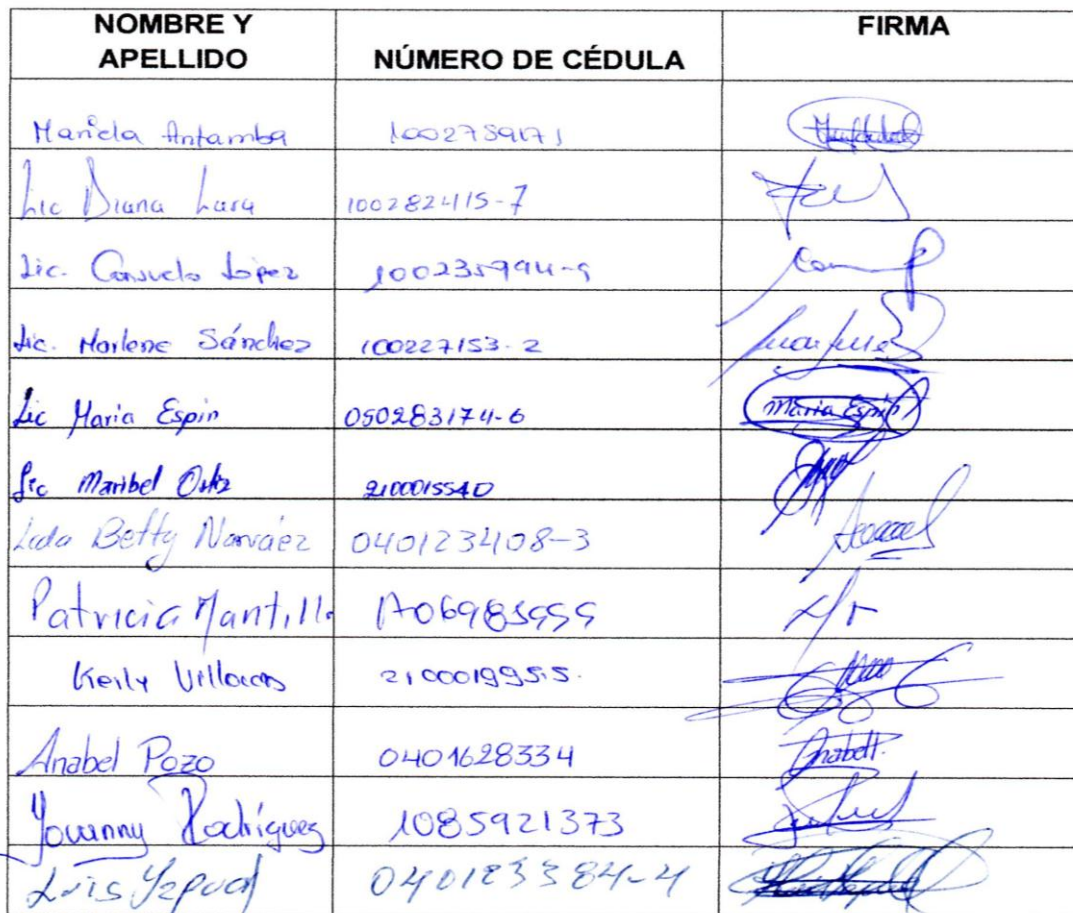 NOMBRE Y APELLIDO NÚMERO DE CÉDULA FIRMA
Mariela Antamba 1002759171
Lic Diana Lara 1002824115-7
Lic. Consuelo López
Lic. Marlene Sánchez 100227153-2
Lic Maria Espin 050283174-6 Maria Espin
Lic Maribel Ortiz 2100015540
Lcda Betty Narváez 040123408-3
Patricia Mantilla
Keily Villacis 2100019955.
Anabel Pozo 0401628334 Anabel P.
Yovanny Rodríguez 1085921373
Luis 040123384-4